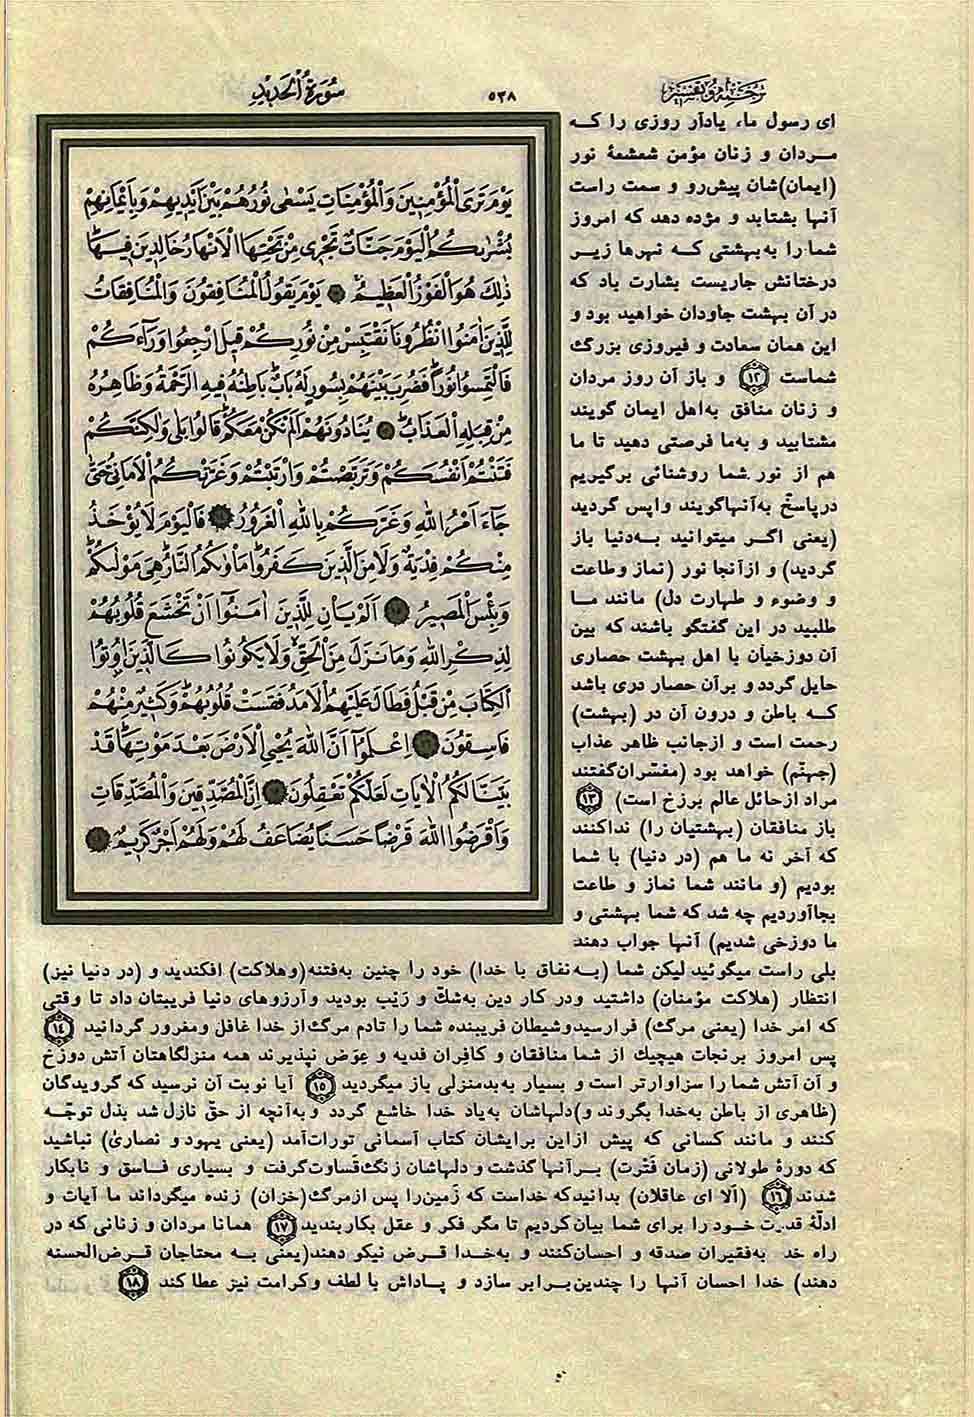 ترجمه و تفسیر
۵۳۸
سُورَةُ الْحَدِيد
يَوْمَ تَرَى الْمُؤْمِنِينَ وَالْمُؤْمِنَاتِ يَسْعٰى نُورُهُمْ بَيْنَ اَيْدِيهِمْ وَبِاَيْمَانِهِمْ
بُشْرٰيكُمُ الْيَوْمَ جَنَّاتٌ تَجْرِى مِنْ تَحْتِهَا الْاَنْهَارُ خَالِدِينَ فِيهَا
ذٰلِكَ هُوَ الْفَوْزُ الْعَظِيمُ ۱۲ يَوْمَ يَقُولُ الْمُنَافِقُونَ وَالْمُنَافِقَاتُ
لِلَّذِينَ اٰمَنُوا انْظُرُونَا نَقْتَبِسْ مِنْ نُورِكُمْ قِيلَ ارْجِعُوا وَرَآءَكُمْ
فَالْتَمِسُوا نُورًا فَضُرِبَ بَيْنَهُمْ بِسُورٍ لَهُ بَابٌ بَاطِنُهُ فِيهِ الرَّحْمَةُ وَظَاهِرُهُ
مِنْ قِبَلِهِ الْعَذَابُ ۱۳ يُنَادُونَهُمْ اَلَمْ نَكُنْ مَعَكُمْ قَالُوا بَلٰى وَلٰكِنَّكُمْ
فَتَنْتُمْ اَنْفُسَكُمْ وَتَرَبَّصْتُمْ وَارْتَبْتُمْ وَغَرَّتْكُمُ الْاَمَانِىُّ حَتّٰى
جَآءَ اَمْرُ اللهِ وَغَرَّكُمْ بِاللهِ الْغَرُورُ ۱۴ فَالْيَوْمَ لَا يُؤْخَذُ
مِنْكُمْ فِدْيَةٌ وَلَا مِنَ الَّذِينَ كَفَرُوا مَاْوٰيكُمُ النَّارُ هِىَ مَوْلٰيكُمْ
وَبِئْسَ الْمَصِيرُ ۱۵ اَلَمْ يَاْنِ لِلَّذِينَ اٰمَنُوا اَنْ تَخْشَعَ قُلُوبُهُمْ
لِذِكْرِ اللهِ وَمَا نَزَلَ مِنَ الْحَقِّ وَلَا يَكُونُوا كَالَّذِينَ اُوتُوا
الْكِتَابَ مِنْ قَبْلُ فَطَالَ عَلَيْهِمُ الْاَمَدُ فَقَسَتْ قُلُوبُهُمْ وَكَثِيرٌ مِنْهُمْ
فَاسِقُونَ ۱۶ اِعْلَمُوٓا اَنَّ اللهَ يُحْيِى الْاَرْضَ بَعْدَ مَوْتِهَا قَدْ
بَيَّنَّا لَكُمُ الْاٰيَاتِ لَعَلَّكُمْ تَعْقِلُونَ ۱۷ اِنَّ الْمُصَّدِّقِينَ وَالْمُصَّدِّقَاتِ
وَاَقْرَضُوا اللهَ قَرْضًا حَسَنًا يُضَاعَفُ لَهُمْ وَلَهُمْ اَجْرٌ كَرِيمٌ ۱۸
ای رسول ما، یادآر روزی را که
مردان و زنان مؤمن شعشعهٔ نور
(ایمان)شان پیش‌رو و سمت راست
آنها بشتابد و مژده دهد که امروز
شما را به‌بهشتی که نهرها زیر
درختانش جاریست بشارت باد که
در آن بهشت جاودان خواهید بود و
این همان سعادت و فیروزی بزرگ
شماست ۱۲ و باز آن روز مردان
و زنان منافق به‌اهل ایمان گویند
مشتابید و به‌ما فرصتی دهید تا ما
هم از نور شما روشنائی برگیریم
درپاسخ به‌آنهاگویند واپس گردید
(یعنی اگر میتوانید به‌دنیا باز
گردید) و ازآنجا نور (نماز وطاعت
و وضوء و طهارت دل) مانند ما
طلبید در این گفتگو باشند که بین
آن دوزخیان با اهل بهشت حصاری
حایل گردد و برآن حصار دری باشد
که باطن و درون آن در (بهشت)
رحمت است و ازجانب ظاهر عذاب
(جهنّم) خواهد بود (مفسّران‌گفتند
مراد ازحائل عالم برزخ است) ۱۳
باز منافقان (بهشتیان را) نداکنند
که آخر نه ما هم (در دنیا) با شما
بودیم (و مانند شما نماز و طاعت
بجاآوردیم چه شد که شما بهشتی و
ما دوزخی شدیم) آنها جواب دهند
بلی راست میگوئید لیکن شما (به‌نفاق با خدا) خود را چنین به‌فتنه(وهلاکت) افکندید و (در دنیا نیز)
انتظار (هلاکت مؤمنان) داشتید ودر کار دین به‌شکّ و رَیْب بودید وآرزوهای دنیا فریبتان داد تا وقتی
که امر خدا (یعنی مرگ) فرارسیدوشیطان فریبنده شما را تادم مرگ‌از خدا غافل ومغرور گردانید ۱۴
پس امروز برنجات هیچیك از شما منافقان و کافران فدیه و عِوَض نپذیرند همه منزلگاهتان آتش دوزخ
و آن آتش شما را سزاوارتر است و بسیار به‌بدمنزلی باز میگردید ۱۵ آیا نوبت آن نرسید که گرویدگان
(ظاهری از باطن به‌خدا بگروند و)دلهاشان به‌یاد خدا خاشع گردد وبه‌آنچه از حقّ نازل شد بذل توجّه
کنند و مانند کسانی که پیش ازاین برایشان کتاب آسمانی تورات‌آمد (یعنی یهود و نصاریٰ) نباشید
که دورهٔ طولانی (زمان فَتْرت) برآنها گذشت و دلهاشان زنگ‌قَساوت‌گرفت و بسیاری فاسق و نابکار
شدند ۱۶ (اَلا ای عاقلان) بدانیدکه خداست که زَمین‌را پس ازمرگ(خزان) زنده میگرداند ما آیات و
ادلّهٔ قدرت خود را برای شما بیان‌کردیم تا مگر فکر و عقل بکاربندید ۱۷ همانا مردان و زنانی که در
راه خد به‌فقیران صدقه و احسان‌کنند و به‌خدا قرض نیکو دهند(یعنی به محتاجان قرض‌الحسنه
دهند) خدا احسان آنها را چندین‌برابر سازد و پاداش با لطف وکرامت نیز عطا کند ۱۸